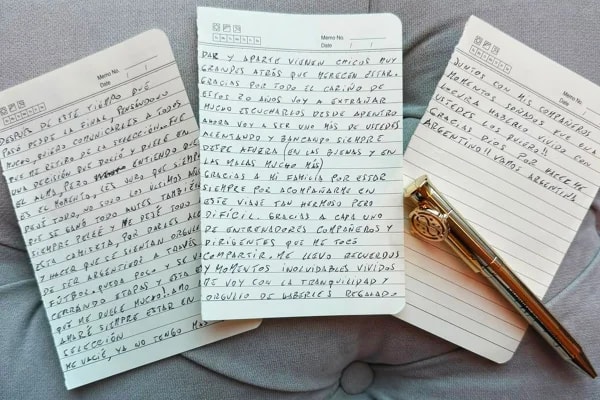 Memo No.
Date / /
DESPUES DE ESTE TIEMPO QUE
PASO DESDE LA FINAL, PENSANDOLO
MUCHO, QUIERO COMUNICARLES A TODOS
QUE ME RETIRO DE LA SELECCION. FUE
UNA DECISION QUE DOLIO Y DUELE EN
EL ALMA, PERO ENTIENDO QUE
ES EL MOMENTO, LES JURO QUE SIEMPRE
DEJÉ TODO, NO SOLO LOS ULTIMOS AÑOS
QUE SE GANÓ TODO ANTES TAMBIÉN
SIEMPRE PELEÉ Y ME DEJÉ TODO
ESTA CAMISETA, POR DARLES
Y HACER QUE SE SIENTAN ORGULLOSOS
DE SER ARGENTINOS A TRAVÉS
FÚTBOL. QUEDA POCO Y SE VAN
CERRANDO ETAPAS Y ESTA
QUE ME DUELE MUCHO! AMO
AMARÉ SIEMPRE ESTAR EN
SELECCIÓN
ME VACIÉ, YA NO TENGO MAS
Memo No.
Date / /
DAR Y APARTE VIENEN CHICOS MUY
GRANDES ATRÁS QUE MERECEN ESTAR.
GRACIAS POR TODO EL CARIÑO DE
ESTOS AÑOS VOY A EXTRAÑAR
MUCHO ESCUCHARLOS DESDE ADENTRO
AHORA VOY A SER UNO MÁS DE USTEDES
ALENTANDO Y BANCANDO SIEMPRE
DESDE AFUERA (EN LAS BUENAS Y EN
LAS MALAS MUCHO MAS)
GRACIAS A MI FAMILIA POR ESTAR
SIEMPRE POR ACOMPAÑARME EN
ESTE VIAJE TAN HERMOSO PERO
DIFÍCIL. GRACIAS A CADA UNO
DE ENTRENADORES COMPAÑEROS Y
DIRIGENTES QUE ME TOCÓ
COMPARTIR. ME LLEVO RECUERDOS
Y MOMENTOS INOLVIDABLES VIVIDOS
ME VOY CON LA TRANQUILIDAD Y
ORGULLO DE HABERLES REGALADO
Memo No.
Date / /
JUNTOS CON MIS COMPAÑEROS
MOMENTOS SOÑADOS FUE UNA
LOCURA HABERLO VIVIDO CON
USTEDES LOS QUIERO!!
GRACIAS DIOS POR HACERME
ARGENTINO!! VAMOS ARGENTINA